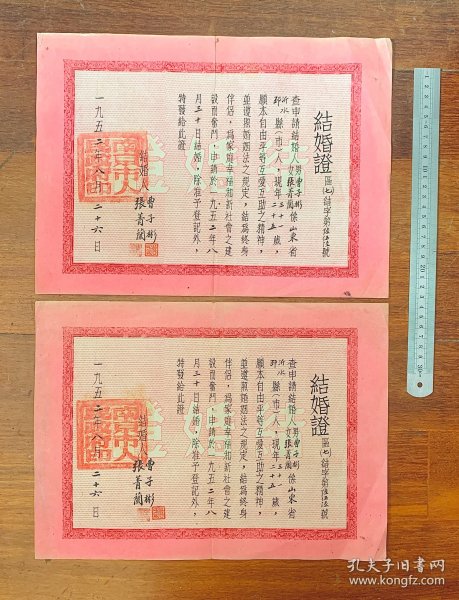 結婚證
區(七)結字第伍伍號
查申請結婚人男曹子彬 女張菁蘭係山東省
沂水 縣(市)人,現年三十一 二十五歲,
願本自由平等互愛互助之精神,
並遵照婚姻法之規定,結為終身
伴侶,為家庭幸福和新社會之建
設而奮鬥,申請於一九五二年八
月三十日結婚,除准予登記外,
特發給此證
結婚人 曹子彬
張菁蘭
一九五二年八月二十六日
結婚證
區(七)結字第伍伍號
查申請結婚人男曹子彬 女張菁蘭係山東省
沂水 縣(市)人,現年三十一 二十五歲,
願本自由平等互愛互助之精神,
並遵照婚姻法之規定,結為終身
伴侶,為家庭幸福和新社會之建
設而奮鬥,申請於一九五二年八
月三十日結婚,除准予登記外,
特發給此證
結婚人 曹子彬
張菁蘭
一九五二年八月二十六日
孔夫子旧书网
www.kongfz.com